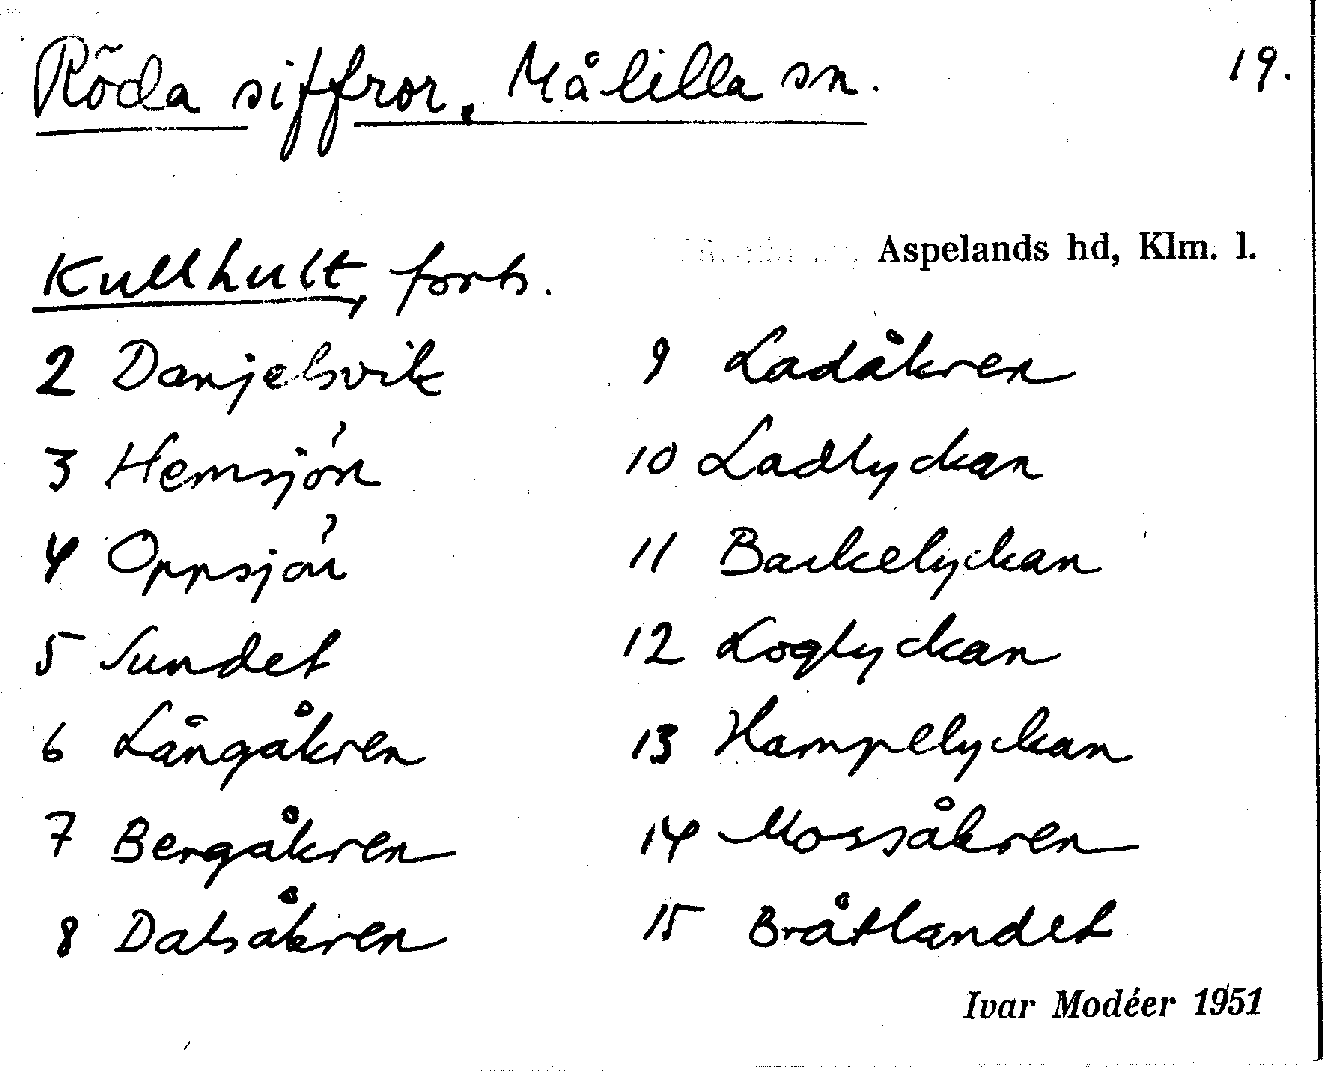 Röda siffror. Målilla sn. 19.
Aspelands hd, Klm. l.
Kullhult, forts.
2 Danjelsvik
3 Hemsjön
4 Oppsjön
5 Sundet
6 Långåkren
7 Bergåkren
8 Dalsåkren
9 Ladåkren
10 Ladlyckan
11 Backelyckan
12 Loglyckan
13 Hampelyckan
14 Mossåkren
15 Bråtlandet
Ivar Modéer 1951